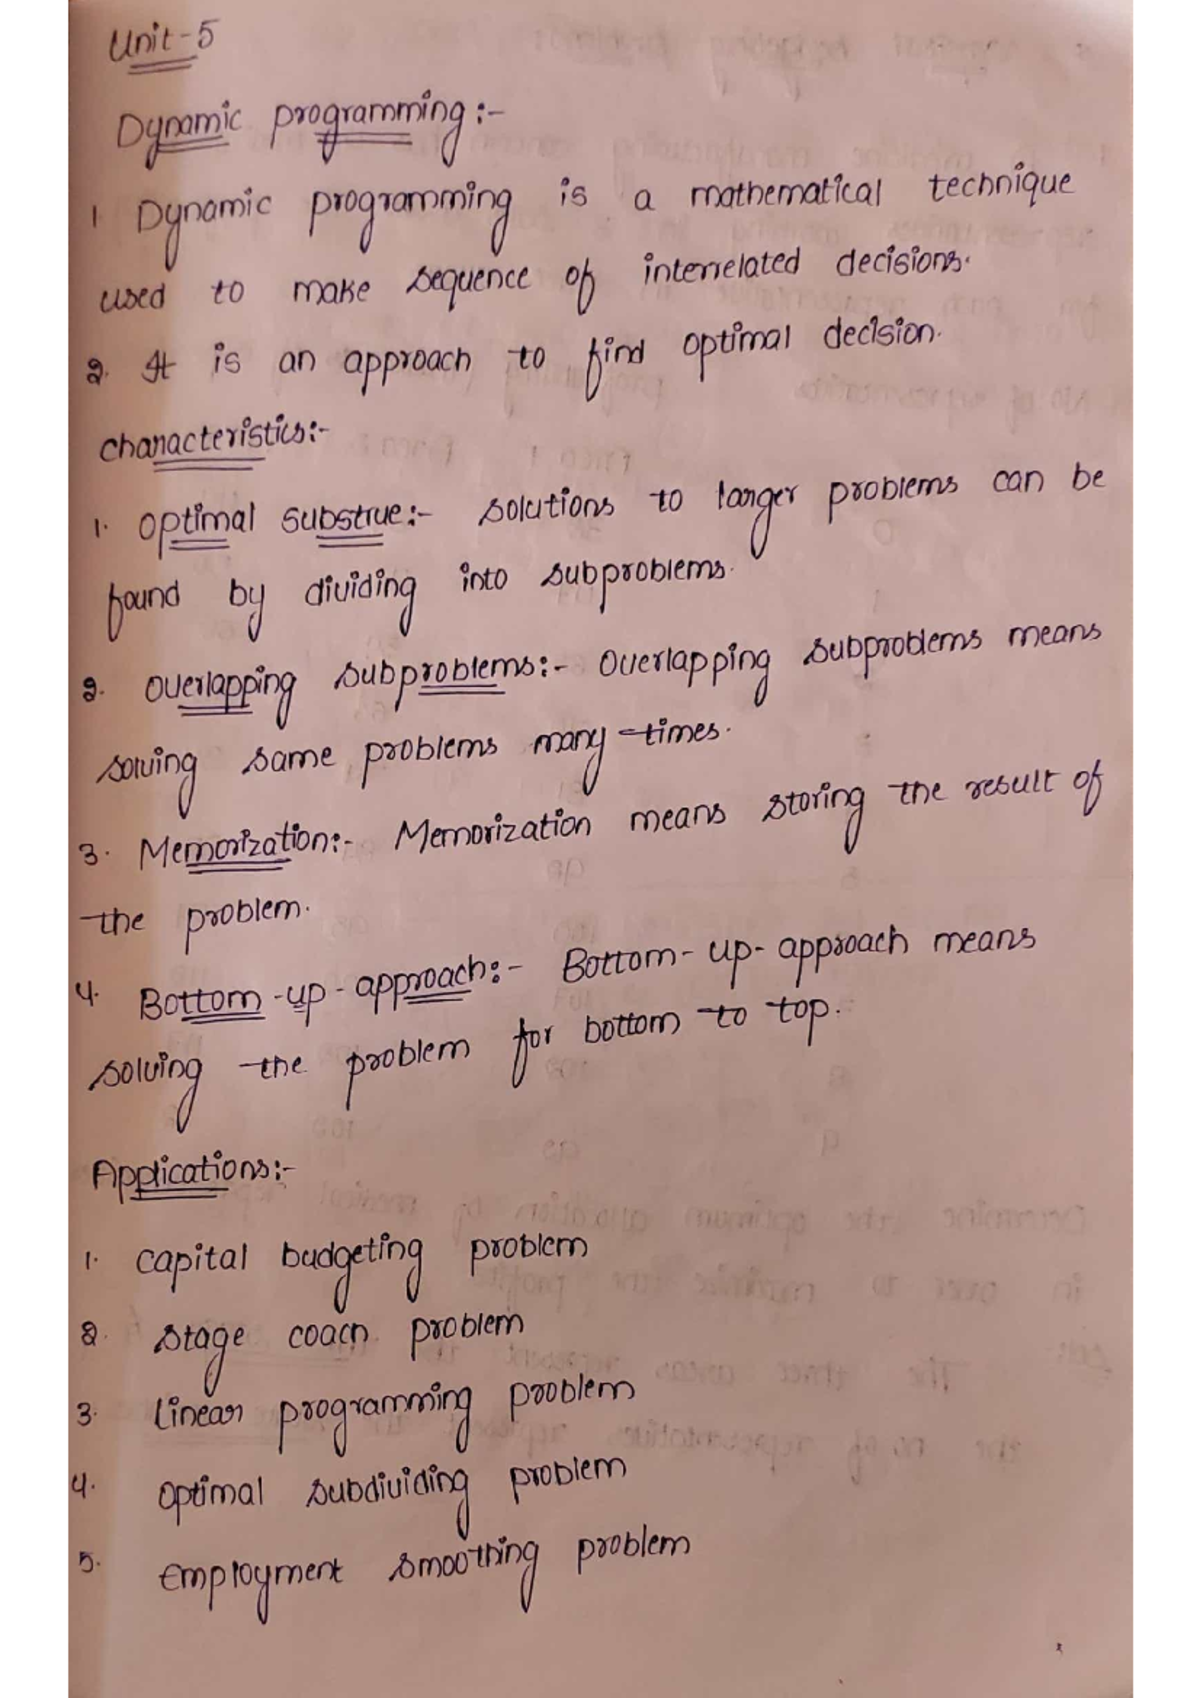 Unit-5
Dynamic programming:-
1 Dynamic programming is a mathematical technique
used to make sequence of interrelated decisions.
2. It is an approach to find optimal decision.
characteristics:-
1. optimal substrue:- solutions to larger problems can be
found by dividing into subproblems.
2. overlapping subproblems:- overlapping subproblems means
solving same problems many times.
3. Memorization:- Memorization means storing the result of
the problem.
4. Bottom-up-approach:- Bottom-up-approach means
solving the problem for bottom to top.
Applications:-
1. capital budgeting problem
2. stage coach problem
3. linear programming problem
4. optimal subdividing problem
5. Employment smoothing problem